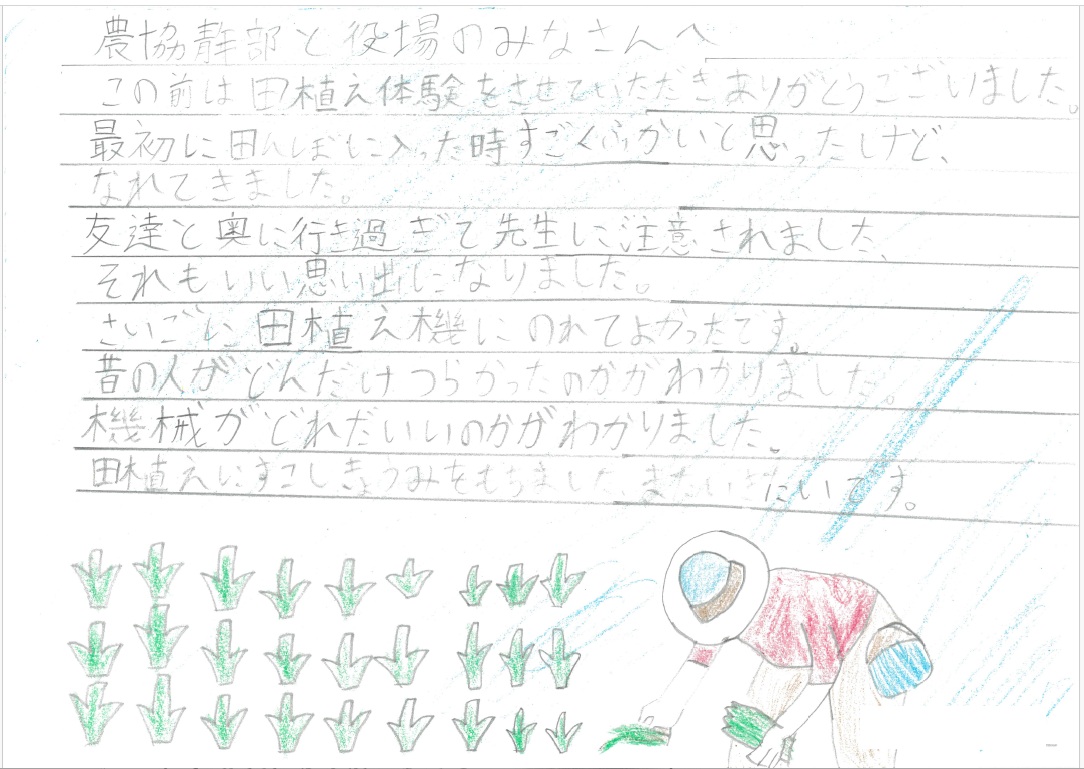 農協幹部と役場のみなさんへ
この前は田植え体験をさせていただきありがとうございました。
最初に田んぼに入った時すごくふかいと思ったけど、
なれてきました。
友達と奥に行き過ぎて先生に注意されました、
それもいい思い出になりました。
さいごに田植え機にのれてよかったです。
昔の人がどんだけつらかったのかがわかりました。
機械がどれだいいのかがわかりました、
田植えにすこしきょうみをもちました、またいきたいです。